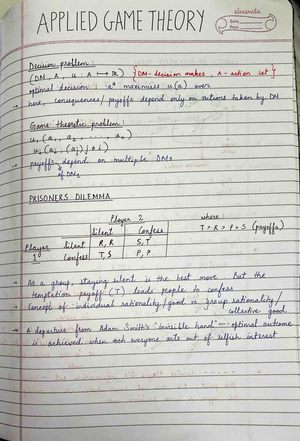 APPLIED GAME THEORY
classmate
Date
Page
Decision problem:
(DM, A, u: A ↦ R) {DM - decision maker, A - action set}
optimal decision: a* maximises u(a) over
→ here, consequences/payoffs depend only on actions taken by DM
Game theoretic problem:
u₁ (a₁, a₂, ..., aₙ)
uᵢ (aᵢ, (aⱼ) j ≠ i)
→ payoffs depend on multiple DMs
of DMs
PRISONERS DILEMMA
Player 2
Silent Confess
Player 1 Silent R, R S, T
Confess T, S P, P
where:
T > R > P > S (payoffs)
→ As a group, staying silent is the best move. But the
temptation payoff (T) leads people to confess
→ Concept of individual rationality/good vs. group rationality/
collective good
→ A departure from Adam Smith's "invisible hand" — optimal outcome
is achieved when each everyone acts out of selfish interest